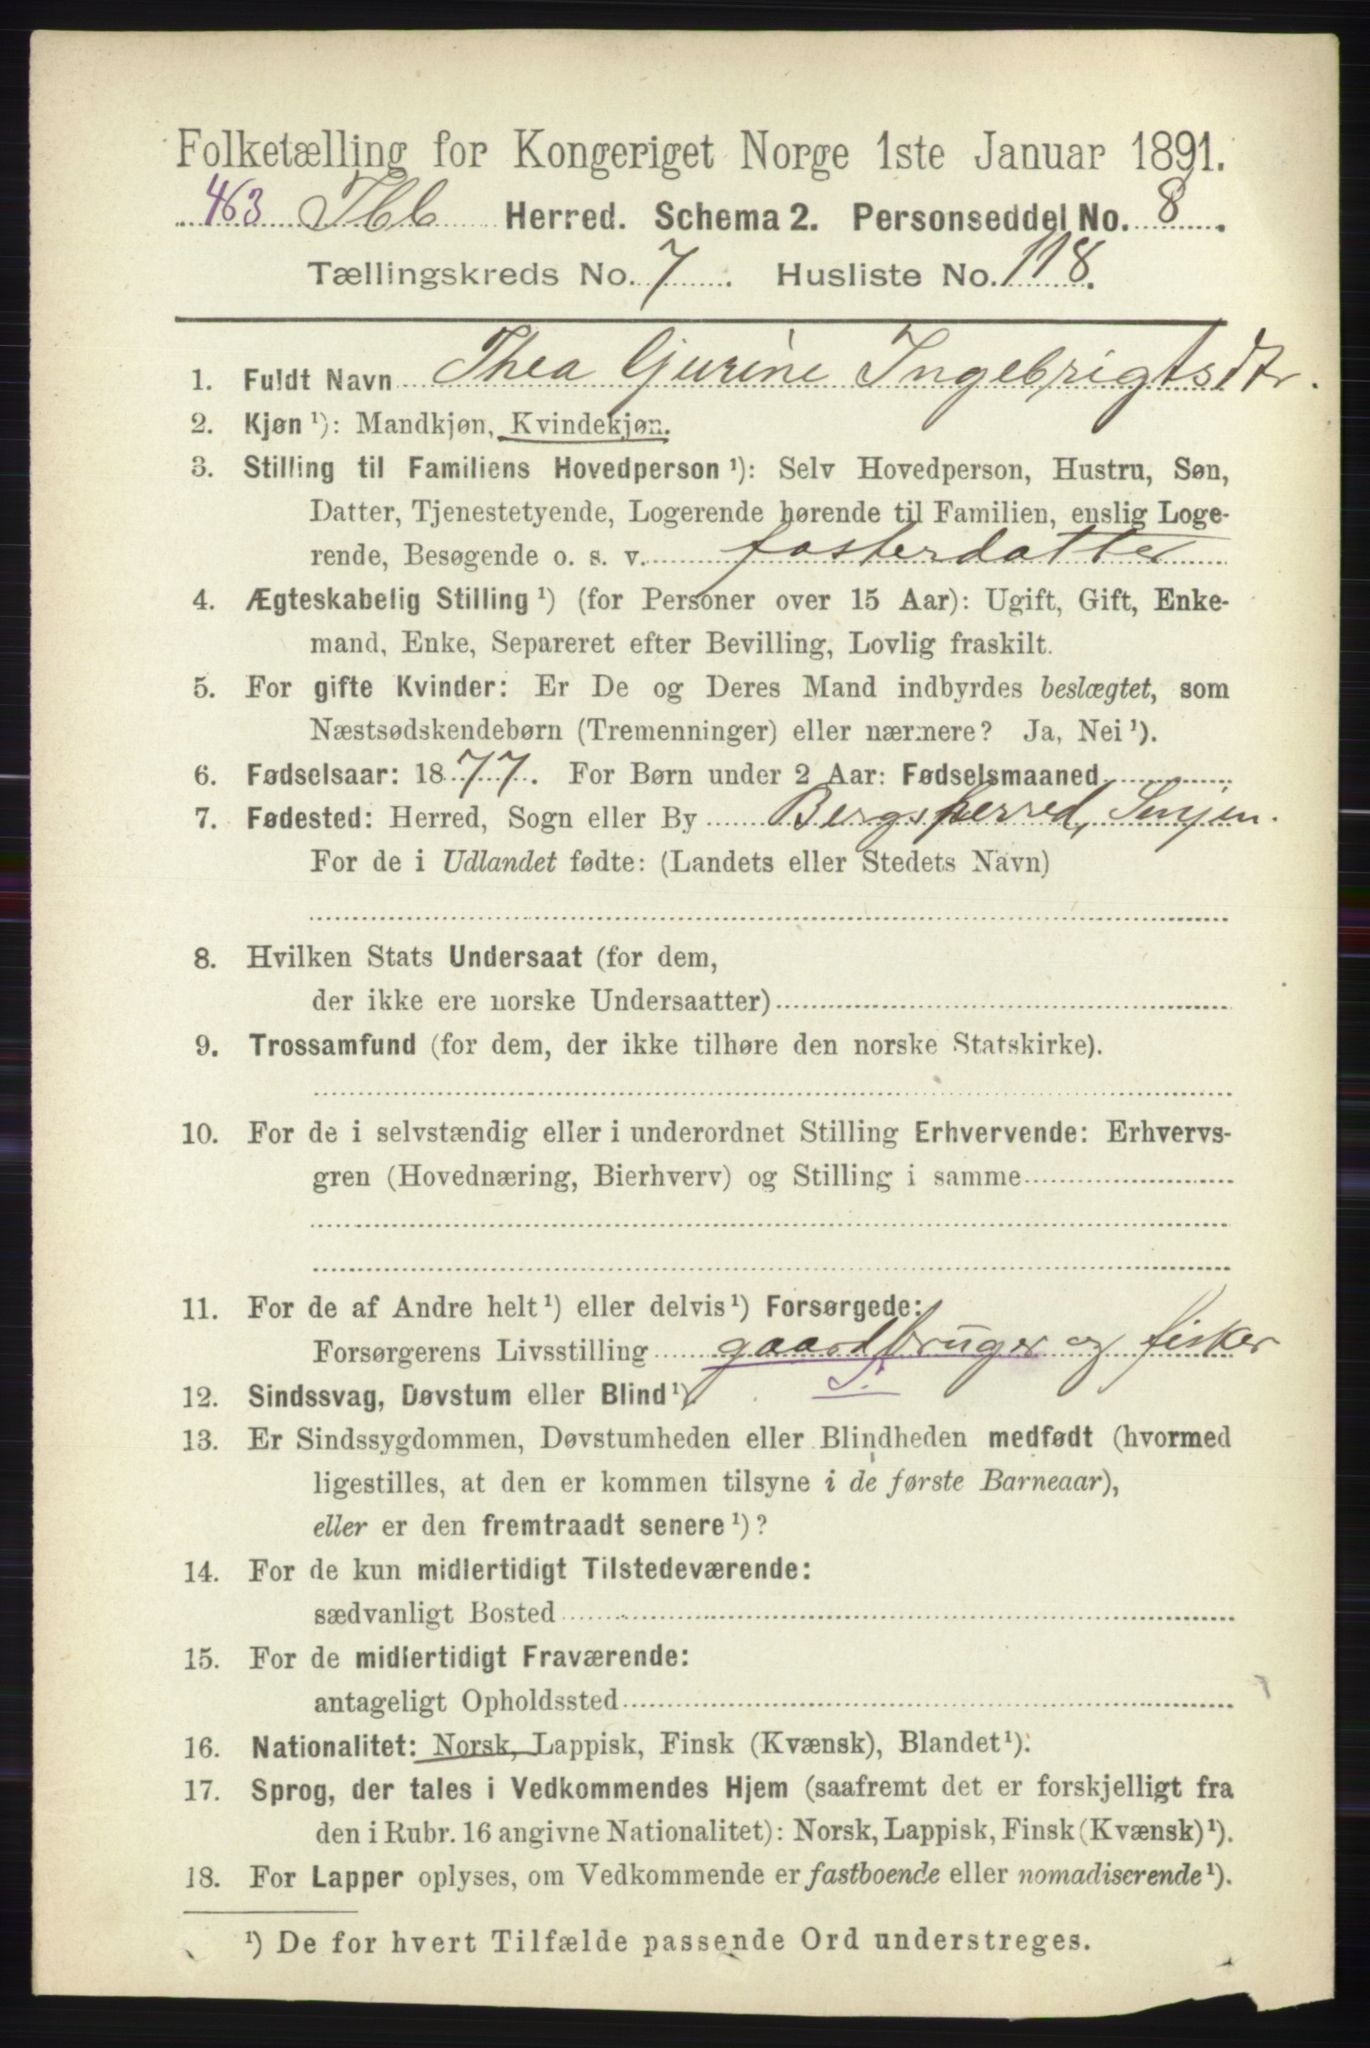 Folketælling for Kongeriget Norge 1ste Januar 1891.
463 Ibb Herred. Schema 2. Personseddel No. 8.
Tællingskreds No. 7. Husliste No. 118.
1. Fuldt Navn Thea Gjurine Ingebrigtsdtr.
2. Kjøn ¹): Mandkjøn, Kvindekjøn.
3. Stilling til Familiens Hovedperson ¹): Selv Hovedperson, Hustru, Søn,
Datter, Tjenestetyende, Logerende hørende til Familien, enslig Loge-
rende, Besøgende o. s. v. fosterdatter
4. Ægteskabelig Stilling ¹) (for Personer over 15 Aar): Ugift, Gift, Enke-
mand, Enke, Separeret efter Bevilling, Lovlig fraskilt.
5. For gifte Kvinder: Er De og Deres Mand indbyrdes beslægtet, som
Næstsødskendebørn (Tremenninger) eller nærmere? Ja, Nei ¹).
6. Fødselsaar: 1877. For Børn under 2 Aar: Fødselsmaaned
7. Fødested: Herred, Sogn eller By Bergsherred, Senjen.
For de i Udlandet fødte: (Landets eller Stedets Navn)
8. Hvilken Stats Undersaat (for dem,
der ikke ere norske Undersaatter)
9. Trossamfund (for dem, der ikke tilhøre den norske Statskirke).
10. For de i selvstændig eller i underordnet Stilling Erhvervende: Erhvervs-
gren (Hovednæring, Bierhverv) og Stilling i samme
11. For de af Andre helt ¹) eller delvis ¹) Forsørgede:
Forsørgerens Livsstilling gaardbruger og fisker
S.
12. Sindssvag, Døvstum eller Blind ¹).
13. Er Sindssygdommen, Døvstumheden eller Blindheden medfødt (hvormed
ligestilles, at den er kommen tilsyne i de første Barneaar),
eller er den fremtraadt senere ¹)?
14. For de kun midlertidigt Tilstedeværende:
sædvanligt Bosted
15. For de midlertidigt Fraværende:
antageligt Opholdssted
16. Nationalitet: Norsk, Lappisk, Finsk (Kvænsk), Blandet ¹).
17. Sprog, der tales i Vedkommendes Hjem (saafremt det er forskjelligt fra
den i Rubr. 16 angivne Nationalitet): Norsk, Lappisk, Finsk (Kvænsk) ¹).
18. For Lapper oplyses, om Vedkommende er fastboende eller nomadiserende ¹).
¹) De for hvert Tilfælde passende Ord understreges.